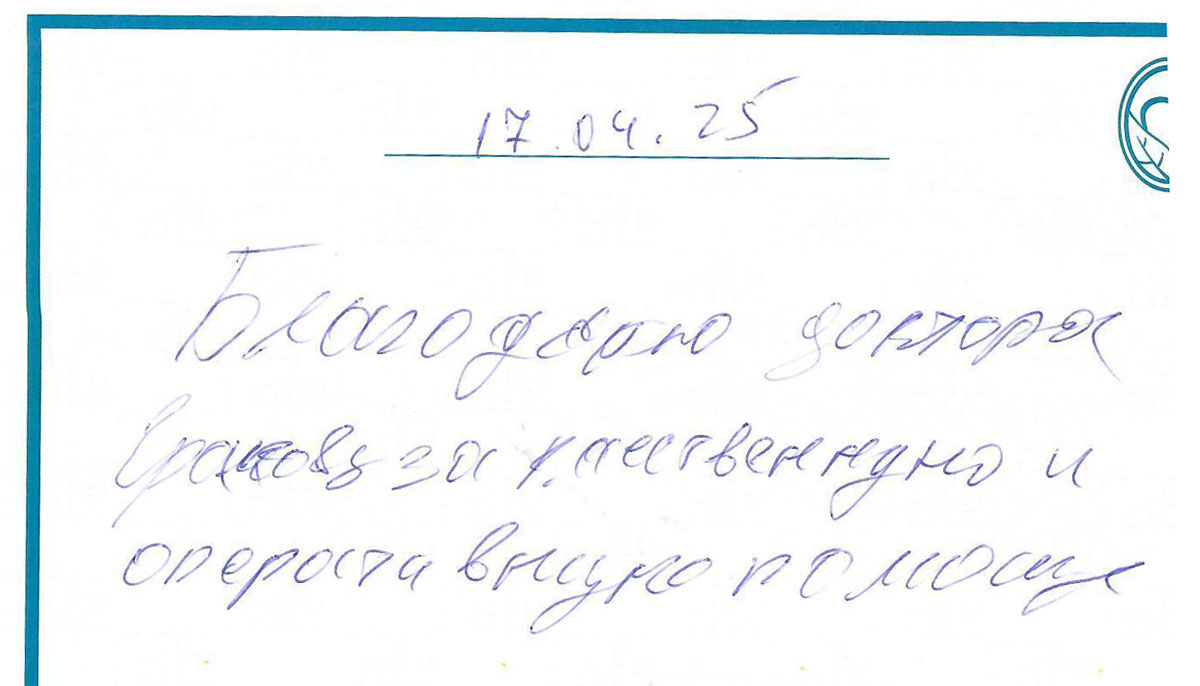 17.04.25
Благодарю доктора
за качественную и
оперативную помощь